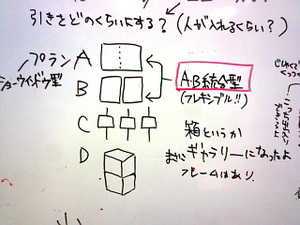 引きさどのくらいにする？（人が入れるくらい？）
プラン
ショーウィンドウ型
A
B
C
D
A·B統合型
(フレキシブル!!)
箱というか
ギャラリーになったよ
フレームはあり